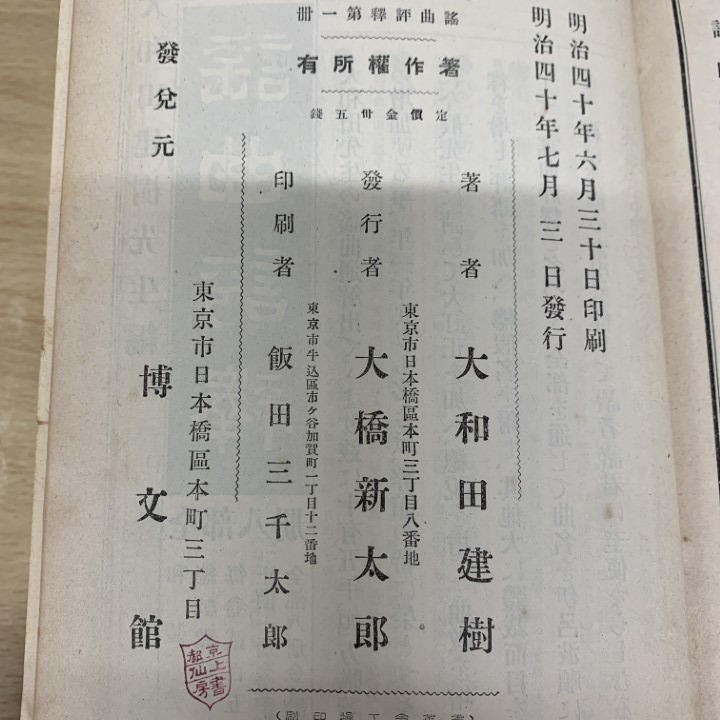 明治四十年六月三十日印刷
明治四十年七月三日發行
謠曲評釋第一册
著作權所有
定價金卅五錢
著者 大和田建樹
東京市日本橋區本町三丁目八番地
發行者 大橋新太郎
東京市牛込區市ケ谷加賀町一丁目十二番地
印刷者 飯田三千太郎
發兌元
東京市日本橋區本町三丁目
博文館
京都
上仙
書房